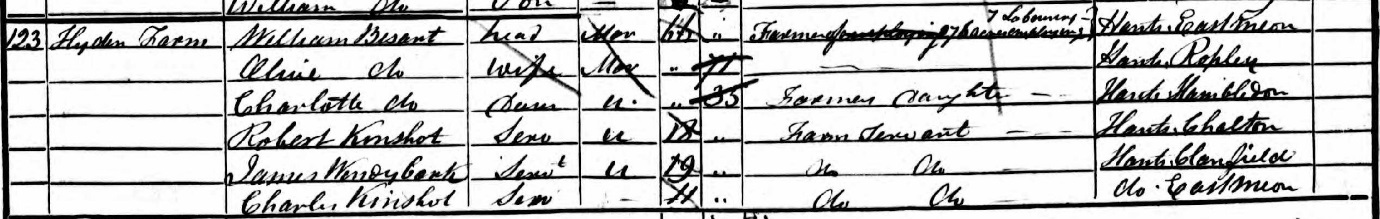 William Do Son
123 Hyden Farm William Besant head Mar 66 " Farmer employing 7 Labourers Hants Eastmeon
Olive do Wife Mar " 71 Hants Ropley
Charlotte do Daur u. " 35 Farmers Daughter Hants Hambledon
Robert Kinshot Serv u 18 " Farm Servant Hants Chalton
James Wendybank Servt u 19 " do do Hants Clanfield
Charles Kinshot Serv - 11 " do do do. Eastmeon